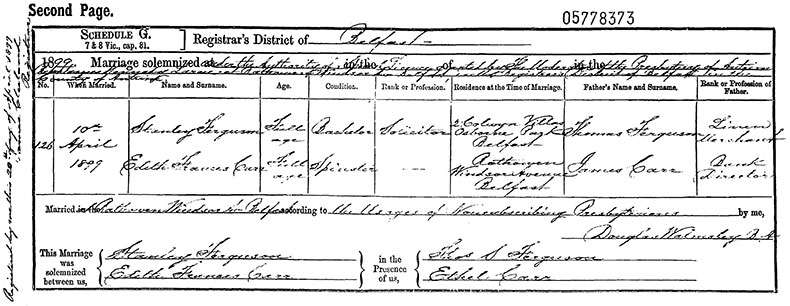 Second Page.
05778373
SCHEDULE G.
7 & 8 Vic., cap. 81.
Registrar's District of Belfast
1899. Marriage solemnized under the authority of a in the of by the Presbytery of Antrim in the
Windsor Belfast in the District of Belfast in the
County of Antrim
No. When Married. Name and Surname. Age. Condition. Rank or Profession. Residence at the Time of Marriage. Father's Name and Surname. Rank or Profession of Father.
126 10th April 1899
Stanley Ferguson Full age Bachelor Solicitor 2 Colwyn Villas Osborne Park Belfast Thomas Ferguson Linen Merchant
Edith Frances Carr Full age Spinster --- Windsor Avenue Belfast James Carr Bank Director
Married in Windsor Belfast according to the Usages of Nonsubscribing Presbyterians by me,
Douglas Walmsley
This Marriage was solemnized between us,
Stanley Ferguson
Edith Frances Carr
in the Presence of us,
Thos S Ferguson
Ethel Carr
Registered by me this 20th day of April 1899
Registrar